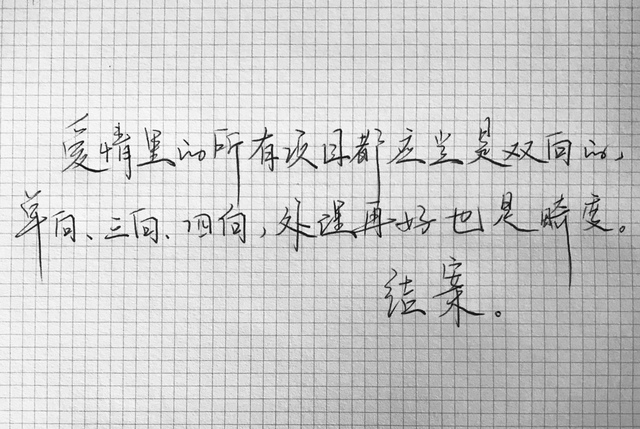 爱情里的所有项目都应当是双向的,
单向、三向、四向,处理再好也是畸度。
结案。